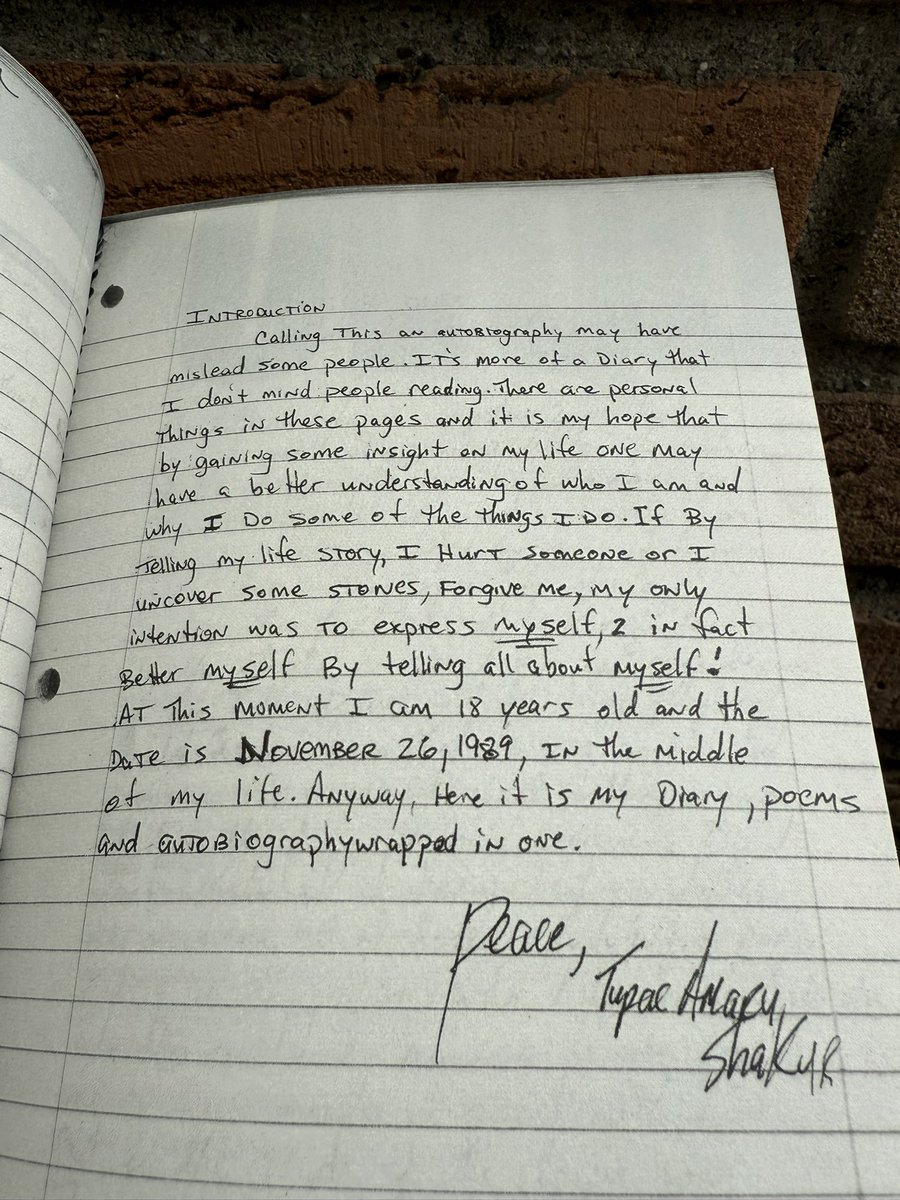 INTRODUCTION
Calling This an autobiography may have
mislead some people. It's more of a Diary that
I don't mind people reading. There are personal
things in these pages and it is my hope that
by gaining some insight on my life one may
have a better understanding of who I am and
why I Do some of the things I DO. If By
Telling my life story, I Hurt someone or I
uncover some stones, Forgive me, my only
intention was to express myself, 2 in fact
Better myself By telling all about myself!
AT This moment I am 18 years old and the
Date is November 26, 1989, in the middle
of my life. Anyway, Here it is my Diary, poems
and autobiography wrapped in one.
Peace,
Tupac Amaru,
Shakur